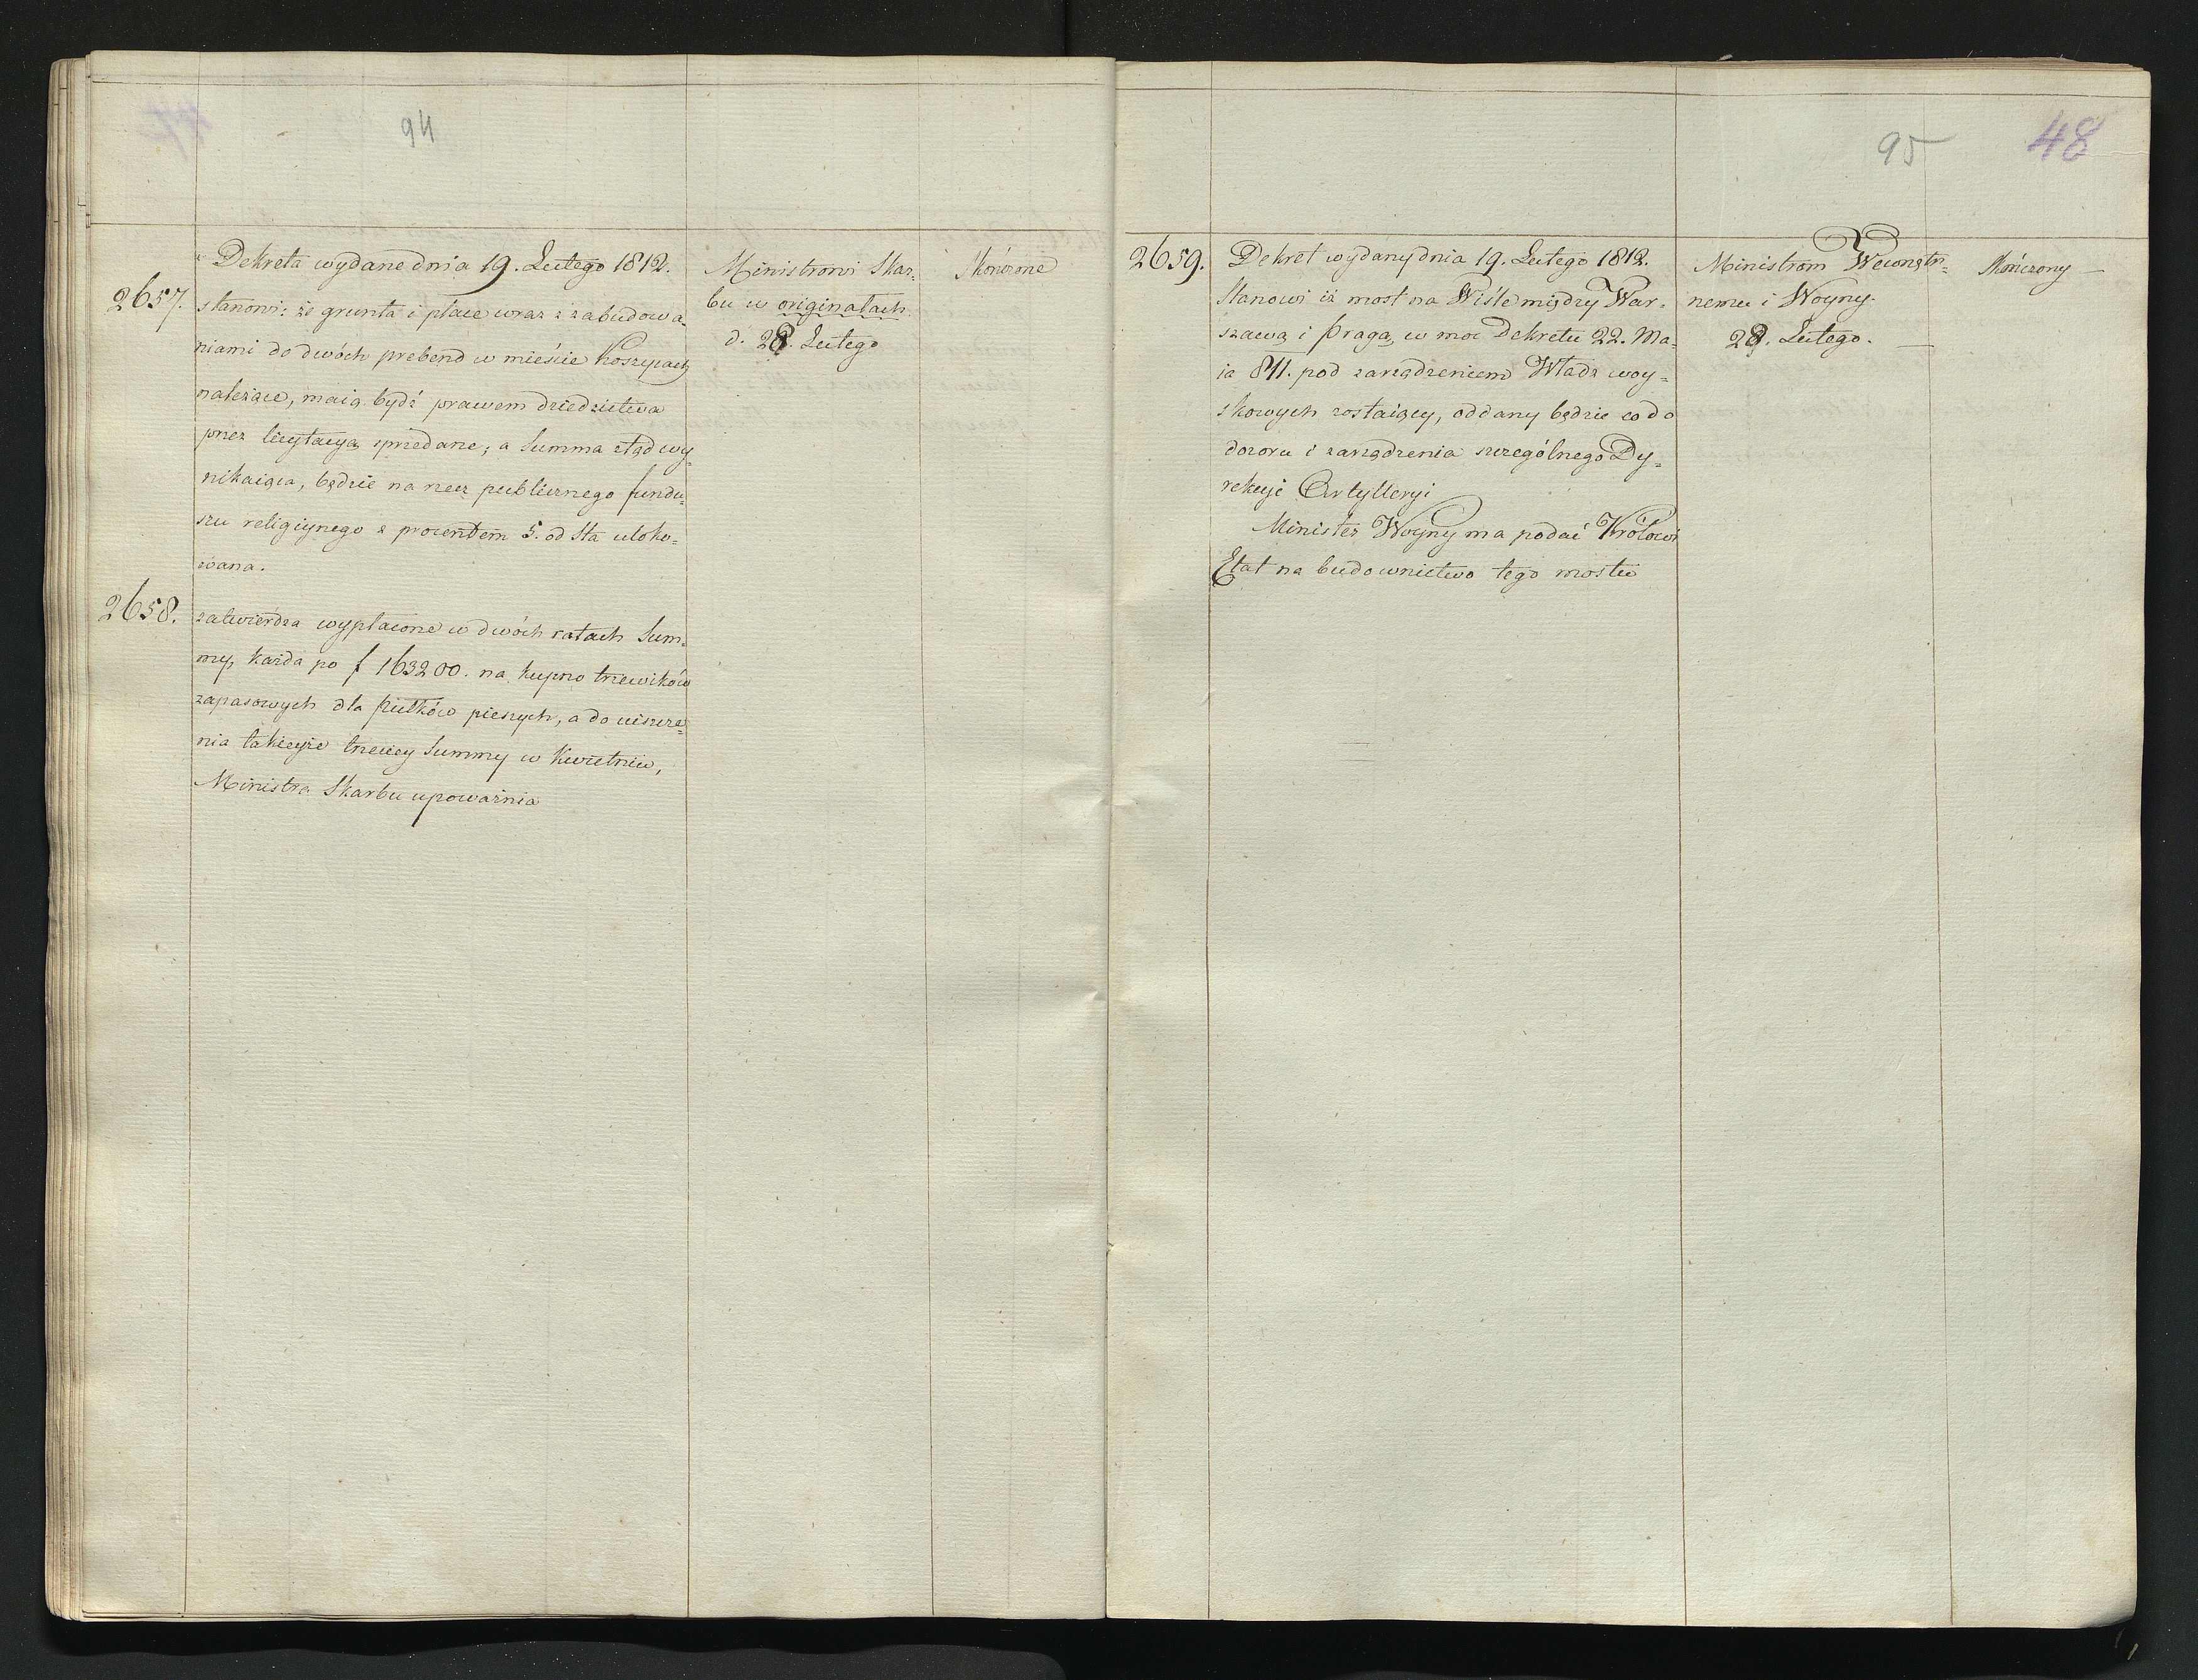 94
Dekreta wydane dnia 19. Lutego 1812.
2657.
stanowi: że grunta i place wraz z zabudowa-
niami do dwóch prebend w mieście Koszycach
należące, maią bydź prawem dziedzictwa
przez licytacyą sprzedane; a Summa ztąd wy-
nikaiąca, będzie na rzecz publicznego fundu-
szu religiynego z procentem 5. od Sta uloko-
wana.
2658.
zatwierdza wypłacone w dwóch ratach Sum-
my, każda po f 163200. na kupno trzewików
zapasowych dla Pułków pieszych, a do uiszcze-
nia takieyże trzeciey Summy w Kwietniu,
Ministra Skarbu upoważnia
Ministrowi Skar-
bu w originałach
d. 28. Lutego
Skończone
95
48
2659.
Dekret wydany dnia 19. Lutego 1812.
Stanowi iż most na Wiśle między War-
szawą i Pragą, w moc Dekretu 22. Ma-
ia 811. pod zarządzeniem Władz woy-
skowych zostaiący, oddany będzie co do
dozoru i zarządzenia szczególnego Dy-
rekcyi Artylleryi
Minister Woyny ma podać Królowi
Etat na budownictwo tego mostu
Ministrom Wewnętr-
nemu i Woyny.
28. Lutego. —
Skończony —